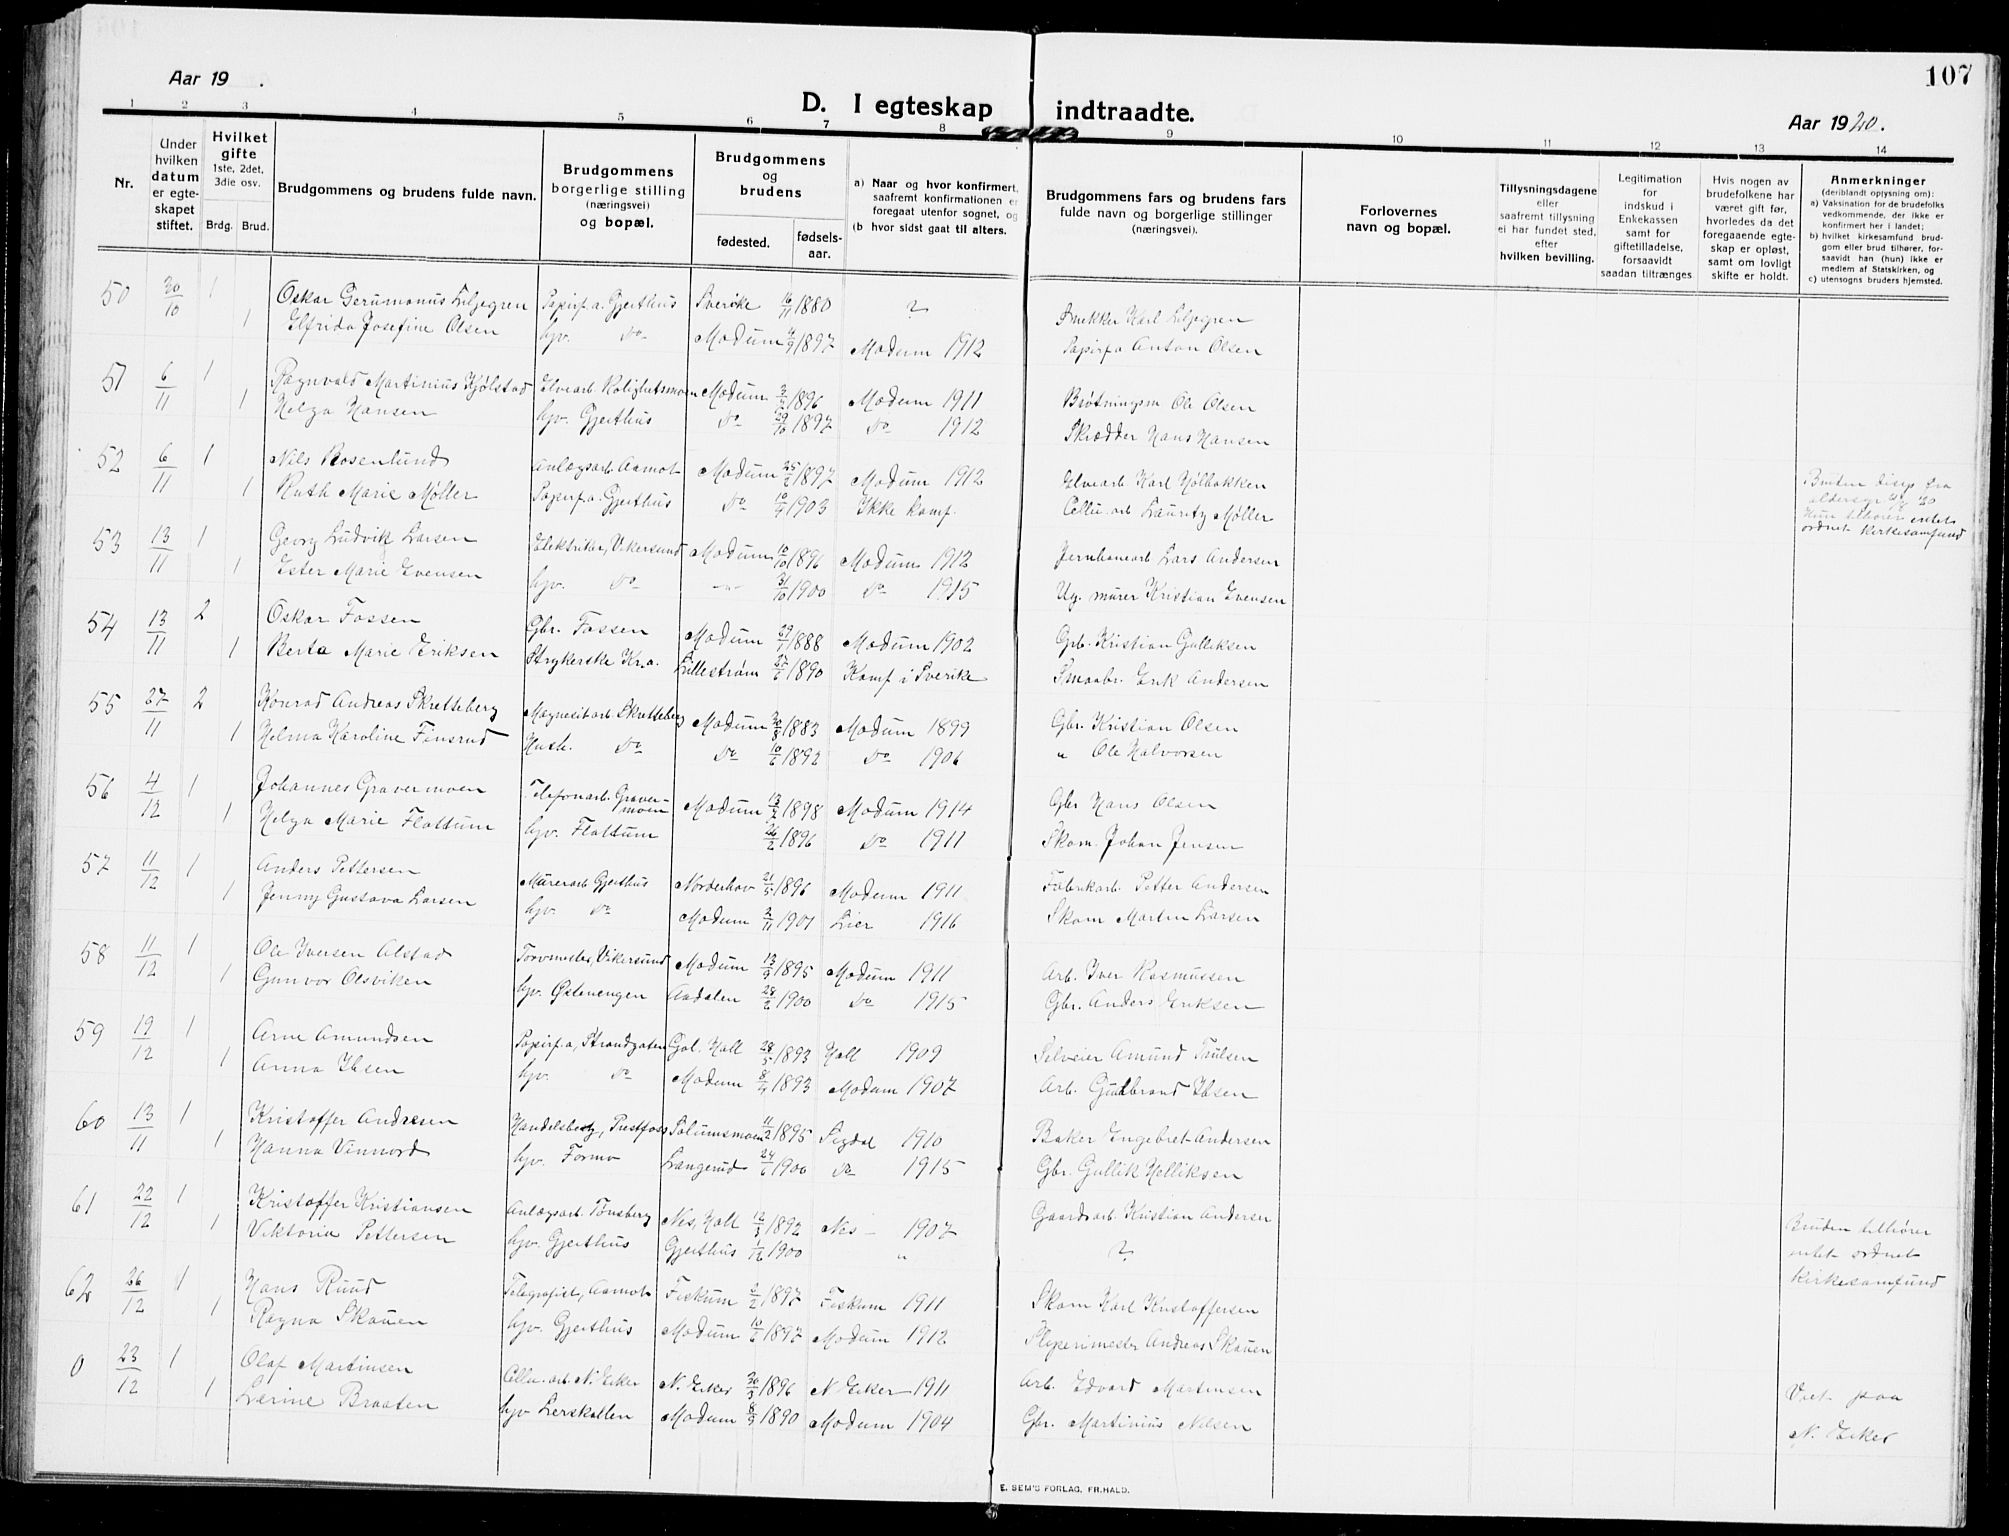 107
Aar 19 .
D. I egteskap indtraadte.
Aar 1920.
1 2 3 4 5 6 7 8 9 10 11 12 13 14
Nr.
Under hvilken datum er egte-skapet stiftet.
Hvilket gifte 1ste, 2det, 3die osv.
Brdg. Brud.
Brudgommens og brudens fulde navn.
Brudgommens borgerlige stilling (næringsvei) og bopæl.
Brudgommens og brudens
fødested. fødsels-aar.
a) Naar og hvor konfirmert, saafremt konfirmationen er foregaat utenfor sognet, og
(b hvor sidst gaat til alters.
Brudgommens fars og brudens fars fulde navn og borgerlige stillinger (næringsvei).
Forlovernes navn og bopæl.
Tillysningsdagene eller saafremt tillysning ei har fundet sted, efter hvilken bevilling.
Legitimation for indskud i Enkekassen samt for giftetilladelse, forsaavidt saadan tiltrænges
Hvis nogen av brudefolkene har været gift før, hvorledes da det foregaaende egte-skap er opløst, samt om lovligt skifte er holdt.
Anmerkninger (deriblandt oplysning om):
a) Vaksination for de brudefolks vedkommende, der ikke er konfirmert her i landet;
b) hvilket kirkesamfund brud-gom eller brud tilhører, for-saavidt han (hun) ikke er medlem af Statskirken, og
c) utensogns bruders hjemsted.
50 30/10 1 Oskar Gerumonus Liljegren Papirf.a. Gjerthus Sverike 16/11 1880 ? Smekker Karl Liljegren
1 Elfrida Josefine Olsen hjv. do Modum 4/9 1897 Modum 1912 Papirfa Anton Olsen
51 6/11 1 Ragnvald Martinius Kjølstad Elvearb Rolighetsmoen Modum 1896 Modum 1911 Brøtningsm Ole Olsen
1 Helga Hansen hjv. Gjerthus do 29/10 1897 do 1912 Skrædder Hans Hansen
52 6/11 1 Nils Rosenlund Anlægsarb. Aamot Modum 1897 Modum 1912 Elvearb Karl Hølbakken
1 Ruth Marie Møller Papirf.a. Gjerthus do 1903 Ikke komf. Cellu. arb Lauritz Møller
Bruten disp fra aldersgr 20
Hun tilhører intet ordnet kirkesamfund
53 13/11 1 Georg Ludvik Larsen Elektriker, Vikersund Modum 10/10 1896 Modum 1912 Jernbanearb Lars Andersen
1 Ester Marie Evensen hjv. do -"- 31/10 1900 do 1915 Ug. murer Kristian Evensen
54 13/11 2 Oskar Fossen Gbr. Fossen Modum 1888 Modum 1902 Grb. Kristian Gulliksen
1 Berta Marie Eriksen Strykerske Kr.a. Lillestrøm 1890 Komf i Sverike Smaabr. Erik Andersen
55 27/11 2 Konrad Andreas Skretteberg Magnesitarb Skretteberg Modum 1883 Modum 1899 Gbr. Kristian Olsen
1 Helma Karoline Finsrud Hush. do do 1892 do 1906 " Ole Halvorsen
56 4/12 1 Johannes Gravermoen Telefonarb. Graver-moen Modum 1898 Modum 1914 Gbr Hans Olsen
1 Helga Marie Flattum hjv. Flattum 26/2 1896 do 1911 Skom. Johan Jensen
57 11/12 1 Anders Pettersen Murerarb Gjerthus Norderhov 21/5 1896 Modum 1911 Fabrikarb. Petter Andersen
1 Jenny Gustava Larsen hjv. do Modum 2/11 1901 Lier 1916 Skom Martin Larsen
58 11/12 1 Ole Iversen Alstad Torvmester, Vikersund Modum 13/9 1895 Modum 1911 Arb. Iver Rasmussen
1 Gunvor Olsviken hjv. Østenengen Aadalen 1900 do 1915 Gbr. Anders Eriksen
59 19/12 1 Arne Amundsen Papirf.a, Strandgaten Gol. Hall 28/5 1893 Hall 1909 Selveier Amund Trulsen
1 Anna Ibsen hjv. do Modum 1893 Modum 1907 Arb. Gudbrand Ibsen
60 13/11 1 Kristoffer Andresen Handelsbetj, Prestfoss Solumsmoen 11/2 1895 Sigdal 1910 Baker Engebret Andersen
1 Hanna Vinnord hjv. Formo Langerud 1900 do 1915 Gbr. Gullik Helliksen
61 22/12 1 Kristoffer Kristiansen Anlægsarb. Tønsberg Nes, Hall 12/3 1892 Nes 1907 Gaardsarb. Kristian Andersen
1 Viktoria Pettersen hjv. Gjerthus Gjerthus 1900 " ?
Bruden tilhører intet ordnet kirkesamfund
62 26/12 1 Hans Ruud Telegrafist, Aamot Fiskum 3/2 1897 Fiskum 1911 Skom Karl Kristoffersen
1 Ragna Skauen hjv. Gjerthus Modum 1897 Modum 1912 Sliperimester Andreas Skauen
0 23/12 1 Olaf Martinsen Cellu. arb. N. Eiker N. Eiker 1896 N Eiker 1911 Arb. Edvard Martinsen
1 Lærine Braaten hjv Lerskallen Modum 1890 Modum 1904 Gbr. Martinius Nilsen
Viet paa N. Eiker
E. SEM'S FORLAG, FR.HALD.